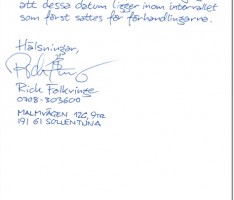 att dessa datum ligger inom intervallet
som först sattes för förhandlingarna.
Hälsningar,
Rick Falkvinge
0708-303600
MALMVÄGEN 12C, 9TR
191 61 SOLLENTUNA